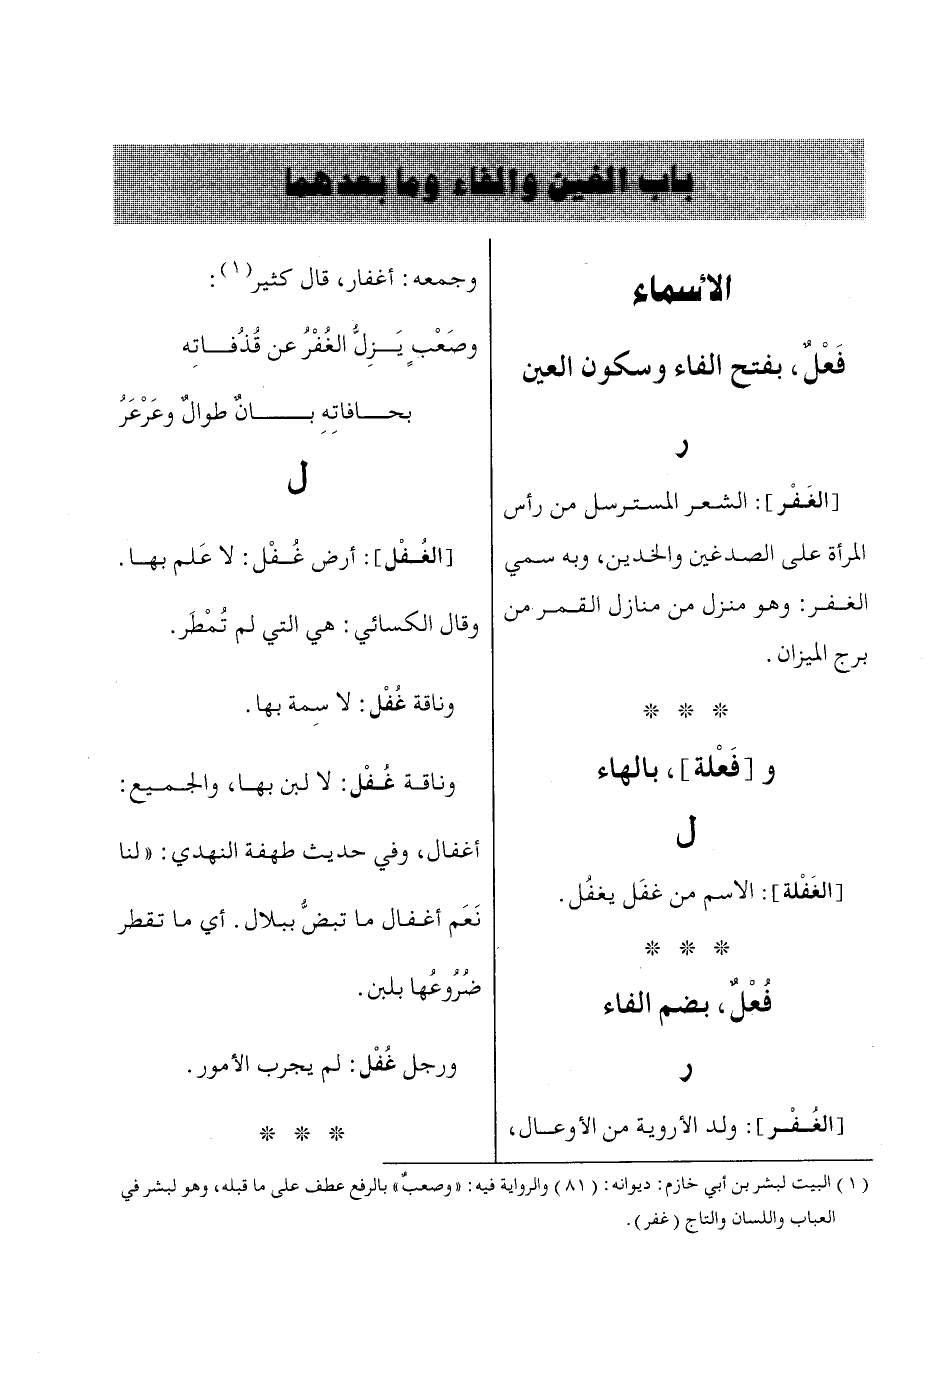 باب الغين والفاء وما بعدهما
الأسماء
فَعْلٌ، بفتح الفاء وسكون العين
ر
[الغَفْر]: الشعر المسترسل من رأس
المرأة على الصدغين والخدين، وبه سمي
الغفر: وهو منزل من منازل القمر من
برج الميزان.
* * *
و [فَعْلة]، بالهاء
ل
[الغَفْلة]: الاسم من غفَل يغفُل.
* * *
فُعْلٌ، بضم الفاء
ر
[الغُفْر]: ولد الأروية من الأوعال،
وجمعه: أغفار، قال كثير(١):
وصَعْبٍ يَزِلُّ الغُفْرُ عن قُذُفاتِه
بحافاتِهِ بانٌ طوالٌ وعَرْعَرُ
ل
[الغُفْل]: أرض غُفْل: لا عَلم بها.
وقال الكسائي: هي التي لم تُمْطَر.
وناقة غُفْل: لا سِمة بها.
وناقة غُفْل: لا لبن بها، والجميع:
أغفال، وفي حديث طهفة النهدي: «لنا
نَعَم أغفال ما تبضُّ ببلال. أي ما تقطر
ضُرُوعُها بلبن.
ورجل غُفْل: لم يجرب الأمور.
* * *
(١) البيت لبشر بن أبي خازم: ديوانه: (٨١) والرواية فيه: «وصعبٌ» بالرفع عطف على ما قبله، وهو لبشر في
العباب واللسان والتاج (غفر).